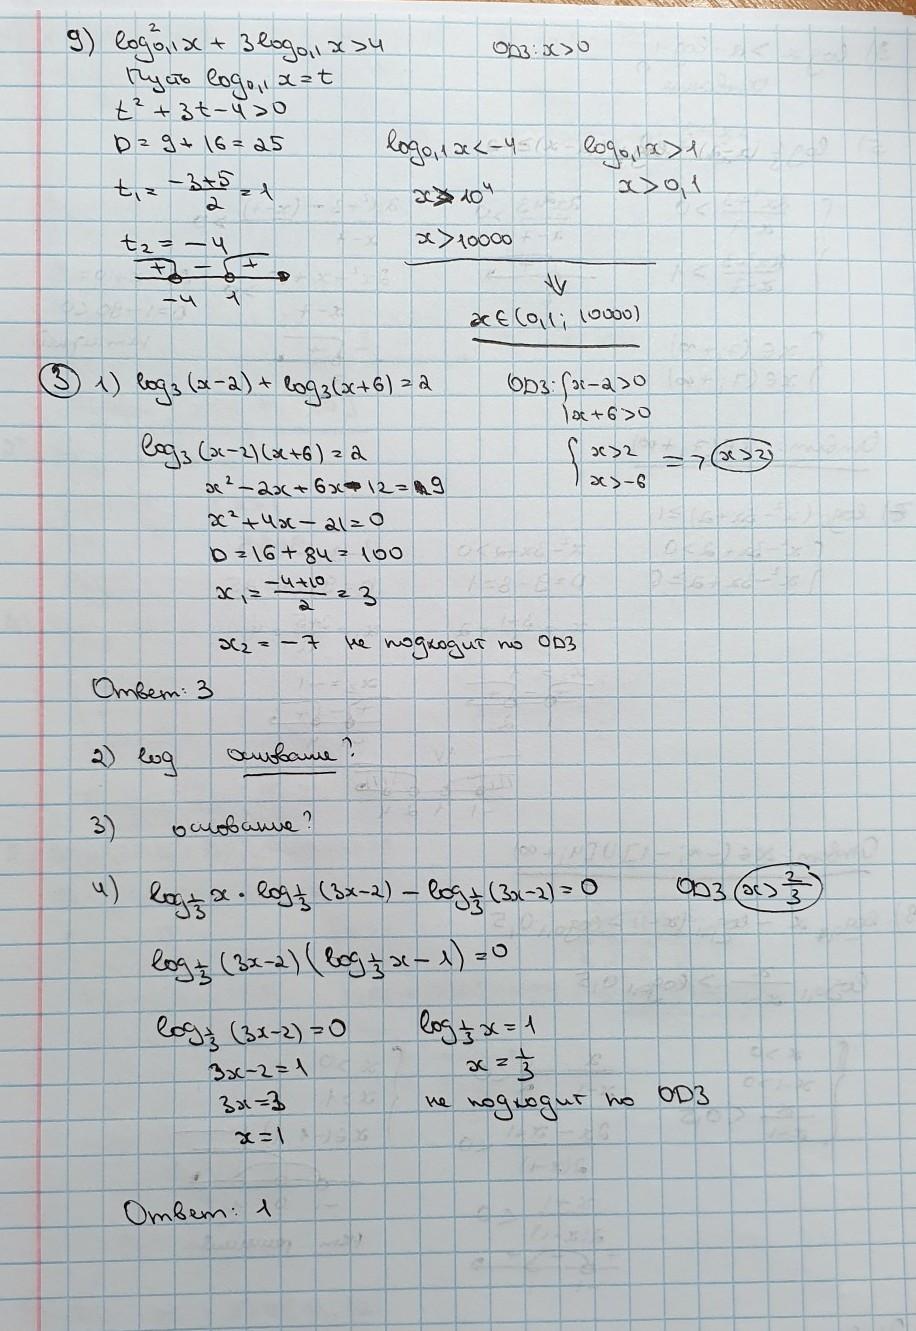 9) log²₀,₁x + 3log₀,₁x>4 ОДЗ: x>0
Пусть log₀,₁x=t
t² + 3t-4>0
D= 9+16=25
t₁= (-3+5)/2 = 1
t₂ = -4
+ - +
-4 1
log₀,₁x<-4 log₀,₁x>1
x>10⁴ x>0,1
x>10000
⇓
x∈(0,1; 10000)
③ 1) log₃(x-2) + log₃(x+6)=2 ОДЗ: { x-2>0
x+6>0
log₃(x-2)(x+6)=2 { x>2 => x>2
x>-6
x²-2x+6x-12=9
x²+4x-21=0
D=16+84=100
x₁= (-4+10)/2 = 3
x₂ = -7 не подходит по ОДЗ
Ответ: 3
2) log основание?
3) основание?
4) log₁/₃x · log₁/₃(3x-2) - log₁/₃(3x-2)=0 ОДЗ x>2/3
log₁/₃(3x-2)(log₁/₃x-1)=0
log₁/₃(3x-2)=0 log₁/₃x=1
3x-2=1 x=1/3
3x=3 не подходит по ОДЗ
x=1
Ответ: 1